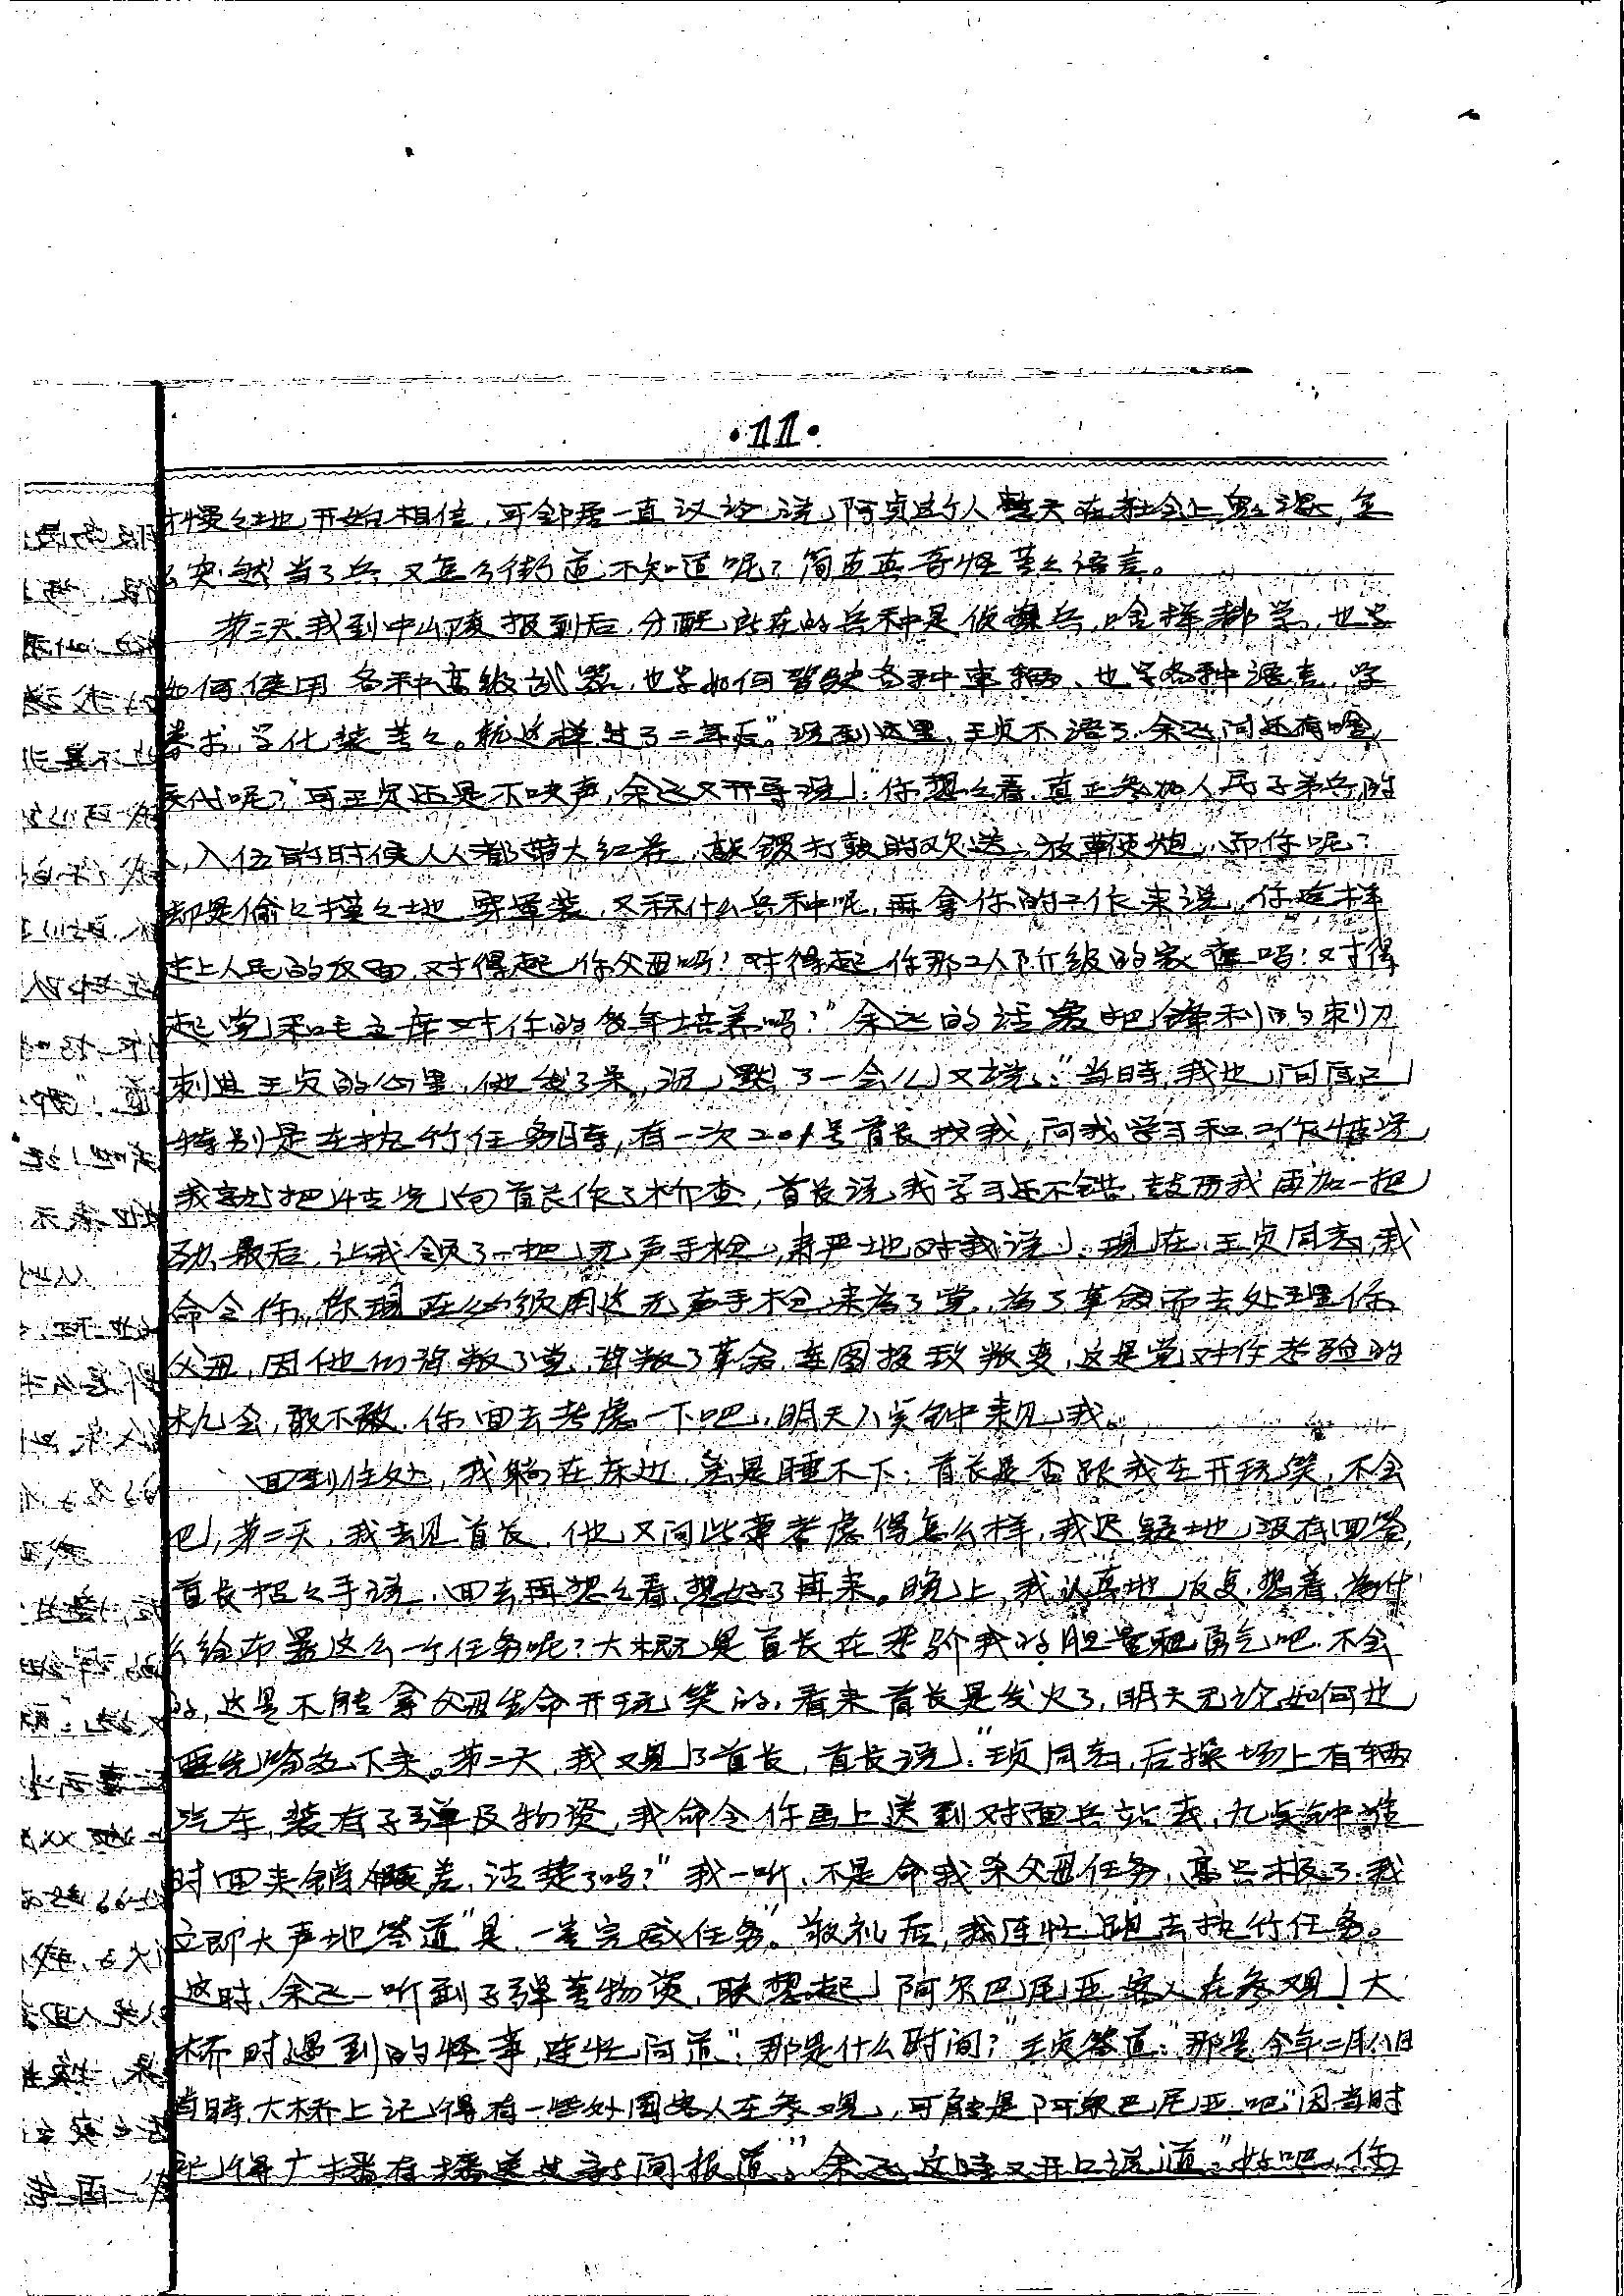 ·11·
才慢々地开始相信,可邻居一直议论说,阿贞这个人整天在社会上鬼混,怎
么突然当了兵,又怎么街道不知道呢?简直真奇怪等々语言。
第三天我到中山陵报到后,分配所在的兵种是侦操兵,啥样都学,也学
如何使用各种高级武器,也学如何驾驶各种车辆、也学各种语言,学
拳术,学化装等々。就这样过了二年后。"说到这里,王贞不语了,余飞问还有啥
交代呢?可王贞还是不吱声,余飞又开导说:"你想々看,真正参加人民子弟兵的
人,入伍的时候人人都带大红花,敲锣打鼓的欢送,放鞭炮,而你呢?
却是偷々摸々地穿军装,又称什么兵种呢,再拿你的工作来说,你这样
走上人民的反面,对得起你父母吗?对得起你那工人阶级的家庭吗?对得
起党和毛主席对你的多年培养吗?"余飞的话象把锋利的刺刀
刺进王贞的心里,他发了呆,沉默了一会儿又说:"当時,我也问自己
特别是在执行任务時,有一次201号首长找我,问我学习和工作情况
我就把情况向首长作了检查,首长说我学习还不错,鼓励我再加一把
劲,最后,让我领了一把无声手枪,肃严地对我说:现在,王贞同志,我
命令你,你现在必须用这无声手枪来为了党,为了革命而去处理你
父母,因他们背叛了党,背叛了革命,妄图投敌叛变,这是党对你考验的
机会,敢不敢,你回去考虑一下吧,明天八点钟来见我。
回到住处,我躺在床边,总是睡不下,首长是否跟我在开玩笑,不会
吧,第二天,我去见首长,他又问此事考虑得怎么样,我迟疑地没有回答,
首长招々手说,回去再想々看,想好了再来。晚上,我认真地反复想着,为什
么给布置这么一个任务呢?大概是首长在考验我的胆量和勇气吧,不会
的,这是不能拿父母生命开玩笑的,看来首长是发火了,明天无论如何也
要先答应下来。第二天,我又见了首长,首长说:"王贞同志,后操场上有辆
汽车,装有子弹及物资,我命令你马上送到对面兵站去,九点钟准
时回来销假差,清楚了吗?"我一听,不是命我杀父母任务,高兴极了,我
立即大声地答道"是,一定完成任务。"敬礼后,我连忙跑去执行任务。
这时,余飞一听到子弹等物资,联想起阿尔巴尼亚客人在参观大
桥时遇到的怪事,连忙问道:"那是什么时间?"王贞答道:"那是今年二月八日
当時,大桥上记得有一些外国客人在参观,可能是阿尔巴尼亚吧"因当时
记得广播有播送此新闻报道",余飞这時又开口说道:"好吧,你